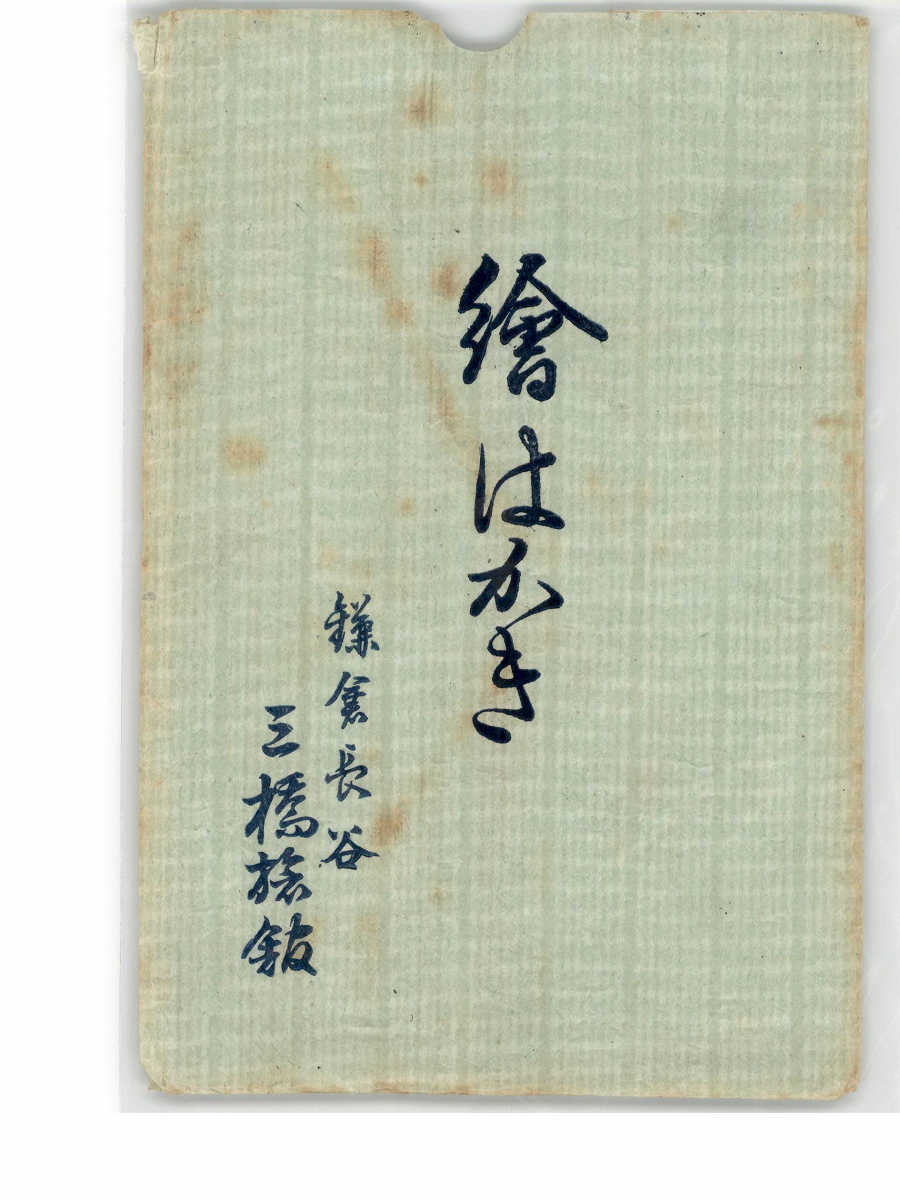 繪はかき
鎌倉長谷
三橋旅舘